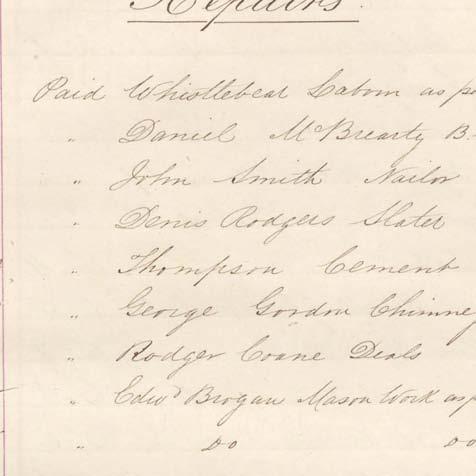 Repairs.
Paid Whistlebear Labom as pe
" Daniel McBrearty B
" John Smith Nailor
" Denis Rodgers Slater
" Thompson Cement
" George Gordon Chimney
" Rodger Coane Deals
" Edwd Brogan Mason Work as p
" Do Do